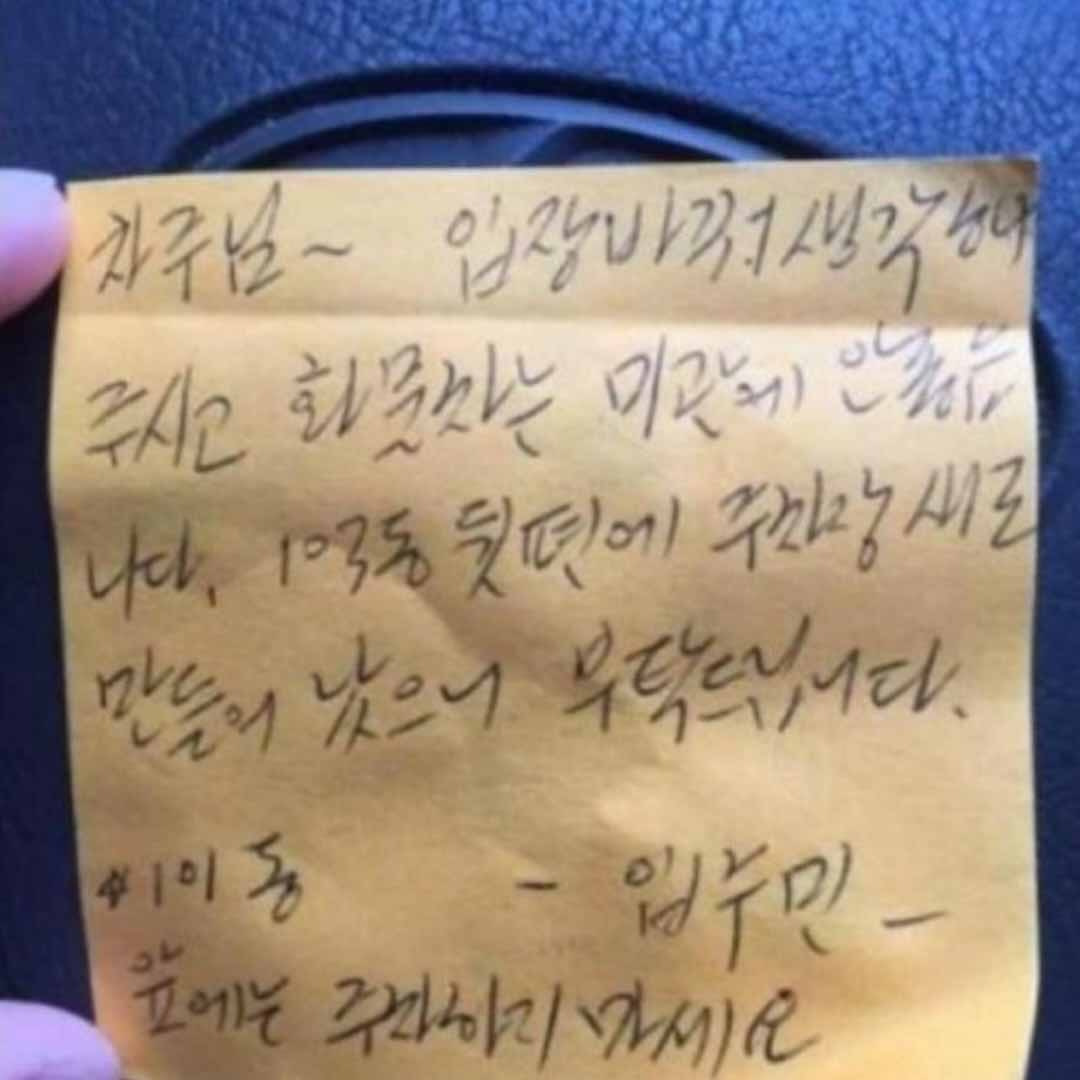 차주님~ 입장바꿔 생각하여
주시고 화물차는 이곳에 안좋습
니다. 109동 뒷편에 주차장 새로
만들어 놨으니 부탁드립니다.
*101동 - 입주민 -
앞에는 주차하지 마세요